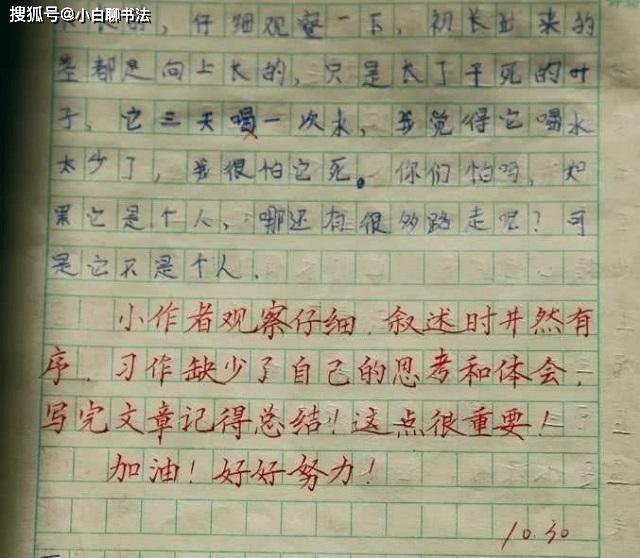 搜狐号@小白聊书法
，仔细观察一下，初长出来的
茎都是向上长的，只是长了干死的叶
子，它三天喝一次水，我觉得它喝水
太少了，我很怕它死。你们怕吗，如
果它是个人，哪还有很多路走呢？可
是它不是个人．
小作者观察仔细，叙述时井然有
序．习作缺少了自己的思考和体会，
写完文章记得总结！这点很重要！
加油！好好努力！
10.30